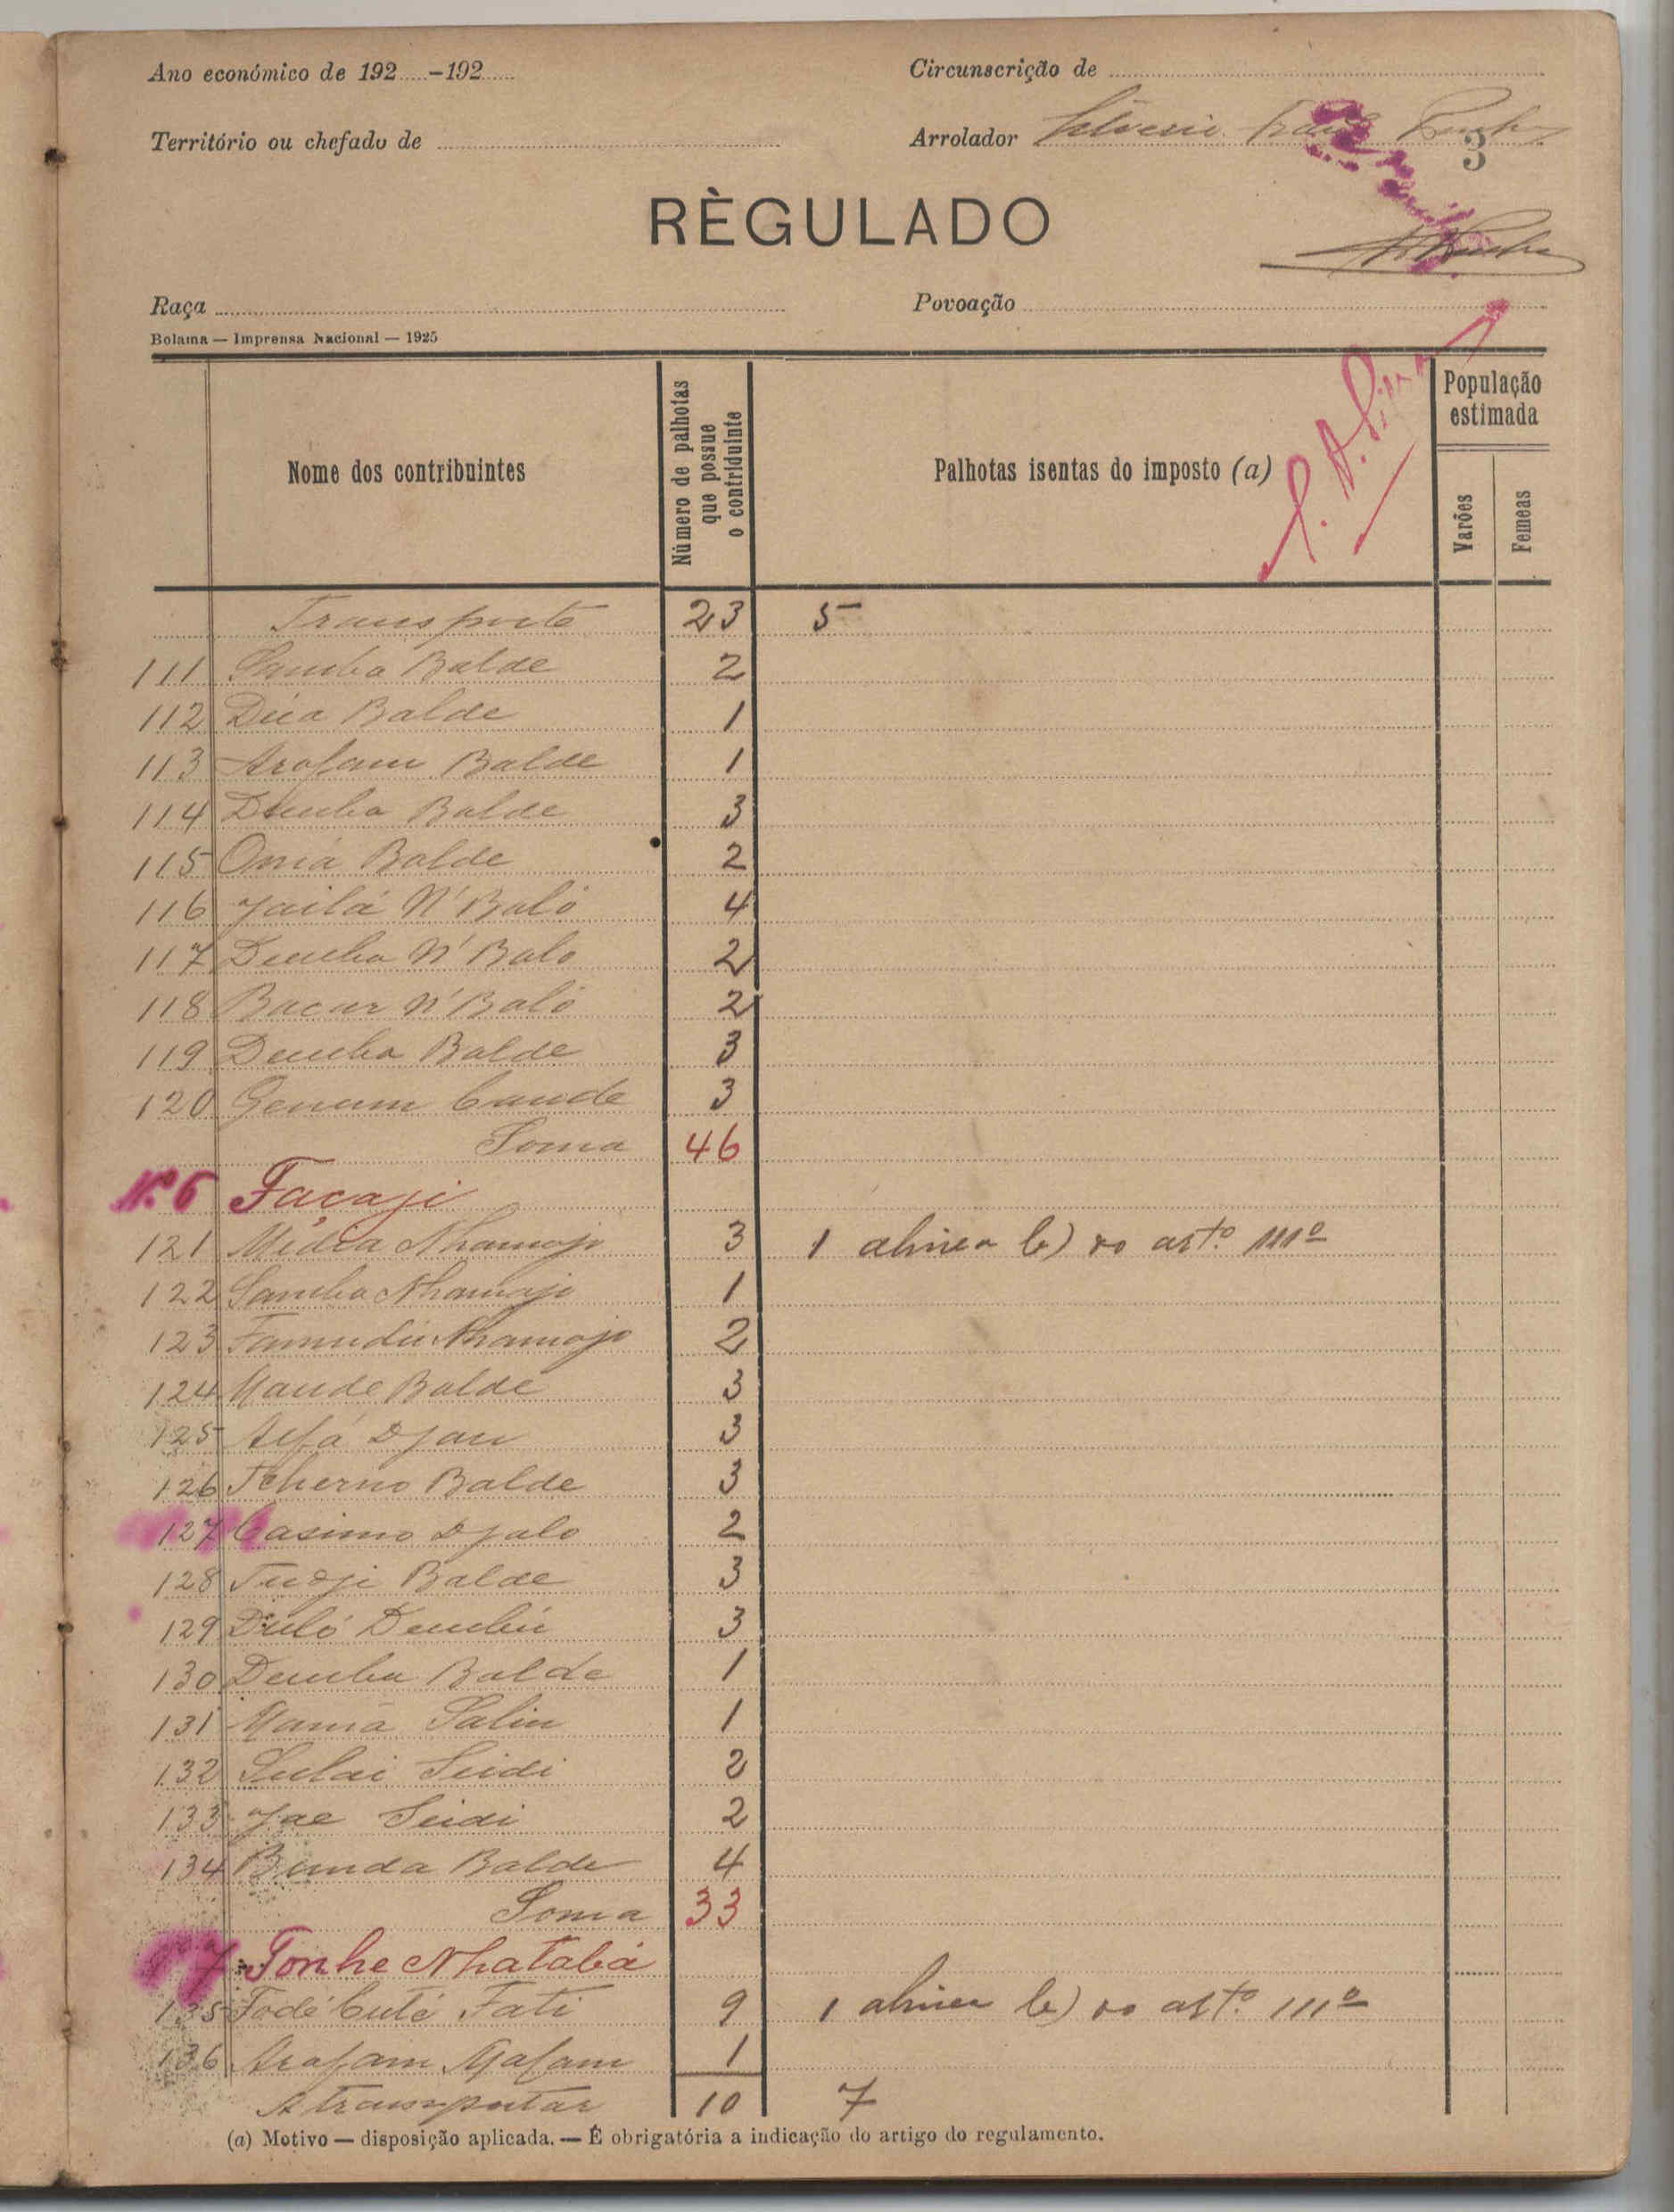 Ano económico de 192.....-192.....
Circunscrição de
Território ou chefado de
Arrolador
3
RÈGULADO
Raça
Povoação
Bolama — Imprensa Nacional — 1925
Nome dos contribuintes
Número de palhotas que possue o contriduinte
Palhotas isentas do imposto (a)
População estimada
Varões
Femeas
Transporte 23 5
111 Samba Balde 2
112 Dica Balde 1
113 Arafam Balde 1
114 Demba Balde 3
115 Balde 2
116 Jailá N'Baló 4
117 Demba N'Balo 2
118 Bacar N'Baló 2
119 Demba Balde 3
120 Genum Cande 3
Soma 46
Nº 6 Façaji
121 Nhamajo 3 1 alinea b) do artº 111º
122 Samba Nhamajo 1
123 Famudu Nhamajo 2
124 Maude Balde 3
125 Alfá Djau 3
126 Tcherno Balde 3
127 Casimo Djalo 2
128 Balde 3
129 3
130 Demba Balde 1
131 Mamá Saliu 1
132 Sulai Seidi 2
133 Jae Seidi 2
134 Bunda Balde 4
Soma 33
7 Tonhe Nhatabá
135 Fodé Cuté Fati 9 1 alinea b) do artº 111º
136 Arafam Mafam 1
A transportar 10 7
(a) Motivo — disposição aplicada. — É obrigatória a indicação do artigo do regulamento.